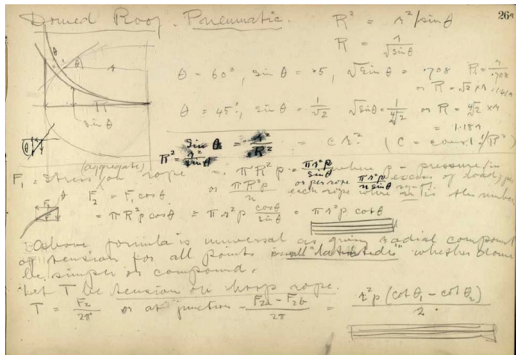 Domed Roof. Pneumatic.
26
R² = r²/sinθ
R = r/√sinθ
θ = 60°, sin θ = .5, √sin θ = .708
or R = √2 × r
θ = 45°, sin θ = 1/√2, √sinθ = 1/∜2 or R = ∜2 × r
= 1.18r
sin θ = r²/R² = c r² (c = const. 1/R²)
R² = r²/sinθ
R
sin θ
(aggregate)
F₁ = Stress on rope = πR²p = πr²p/sinθ where p = pressure in excess of load
or πR²p/n or per rope πr²p/n sinθ each rope where n is the number
F₂ = F₁ cosθ
= πR²p cosθ = πr²p cosθ/sinθ = πr²p cotθ
Above formula is universal as giving radial component
of tension for all points on all "latitude" whether dome
be simple or compound.
Let T be tension on hoop rope.
T = F₂/2π or at junction F₂ₐ − F₂b/2π = r²p (cotθ₁ − cotθ₂)/2